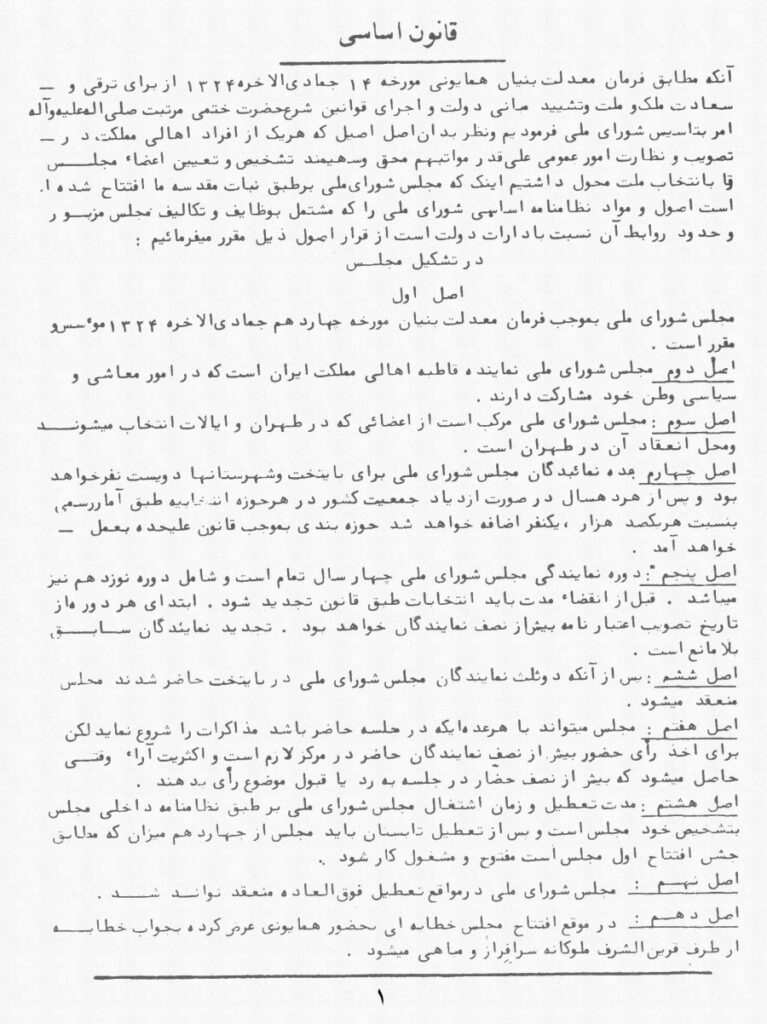 قانون اساسی
آنکه مطابق فرمان معدلت بنیان همایونی مورخه ۱۴ جمادی‌الاخره ۱۳۲۴ از برای ترقی و —
سعادت ملک و ملت وتشیید مبانی دولت و اجرای قوانین شرع حضرت ختمی مرتبت صلی‌اله‌علیه‌وآله
امر بتاسیس شورای ملی فرمودیم ونظر بدان اصل اصیل که هریک از افراد اهالی مملکت در —
تصویب و نظارت امور عمومی علی‌قدر مراتبهم محق وسهیمند تشخیص و تعیین اعضاء مجلس
را بانتخاب ملت محول داشتیم اینک که مجلس شورای‌ملی برطبق نیات مقدسه ما افتتاح شده ا
است اصول و مواد نظامنامه اساسی شورای ملی را که مشتمل بوظایف و تکالیف مجلس مزبور
و حدود روابط آن نسبت بادارات دولت است از قرار اصول ذیل مقرر میفرمائیم :
در تشکیل مجلس
اصل اول
مجلس شورای ملی بموجب فرمان معدلت بنیان مورخه چهاردهم جمادی‌الاخره ۱۳۲۴ موٴسس و
مقرر است .
اصل دوم مجلس شورای ملی نماینده قاطبه اهالی مملکت ایران است که در امور معاشی و
سیاسی وطن خود مشارکت دارند .
اصل سوم : مجلس شورای ملی مرکب است از اعضائی که در طهران و ایالات انتخاب میشوند
ومحل انعقاد آن در طهران است .
اصل چهارم عده نمائیدگان مجلس شورای ملی برای پایتخت وشهرستانها دویست نفرخواهد
بود و پس از هرده سال در صورت ازدیاد جمعیت کشور در هرحوزه انتخابیه طبق آماررسمی
بنسبت هریکصد هزار ، یکنفر اضافه خواهد شد حوزه بندی بموجب قانون علیحده بعمل —
خواهد آمد .
اصل پنجم : دوره نمایندگی مجلس شورای ملی چهار سال تمام است و شامل دوره نوزدهم نیز
میباشد . قبل از انقضاء مدت باید انتخابات طبق قانون تجدید شود . ابتدای هر دوره از
تاریخ تصویب اعتبار نامه بیش از نصف نمایندگان خواهد بود . تجدید نمایندگان سابق
بلامانع است .
اصل ششم : پس از آنکه دوثلث نمایندگان مجلس شورای ملی در پایتخت حاضر شدند مجلس
منعقد میشود .
اصل هفتم : مجلس میتواند با هرعده‌ایکه در جلسه حاضر باشد مذاکرات را شروع نماید لکن
برای اخذ رأی حضور بیش از نصف نمایندگان حاضر در مرکز لازم است و اکثریت آراء وقتی
حاصل میشود که بیش از نصف حضار در جلسه به رد یا قبول موضوع رأی بدهند .
اصل هشتم : مدت تعطیل و زمان اشتغال مجلس شورای ملی بر طبق نظامنامه داخلی مجلس
بتشخیص خود مجلس است و پس از تعطیل تابستان باید مجلس از چهاردهم میزان که مطابق
جشن افتتاح اول مجلس است مفتوح و مشغول کار شود .
اصل نهم : مجلس شورای ملی درمواقع تعطیل فوق‌العاده منعقد تواند شد .
اصل دهم : در موقع افتتاح مجلس خطابه ای بحضور همایونی عرض کرده بجواب خطابه
از طرف قرین‌الشرف ملوکانه سرافراز و مباهی میشود .
۱